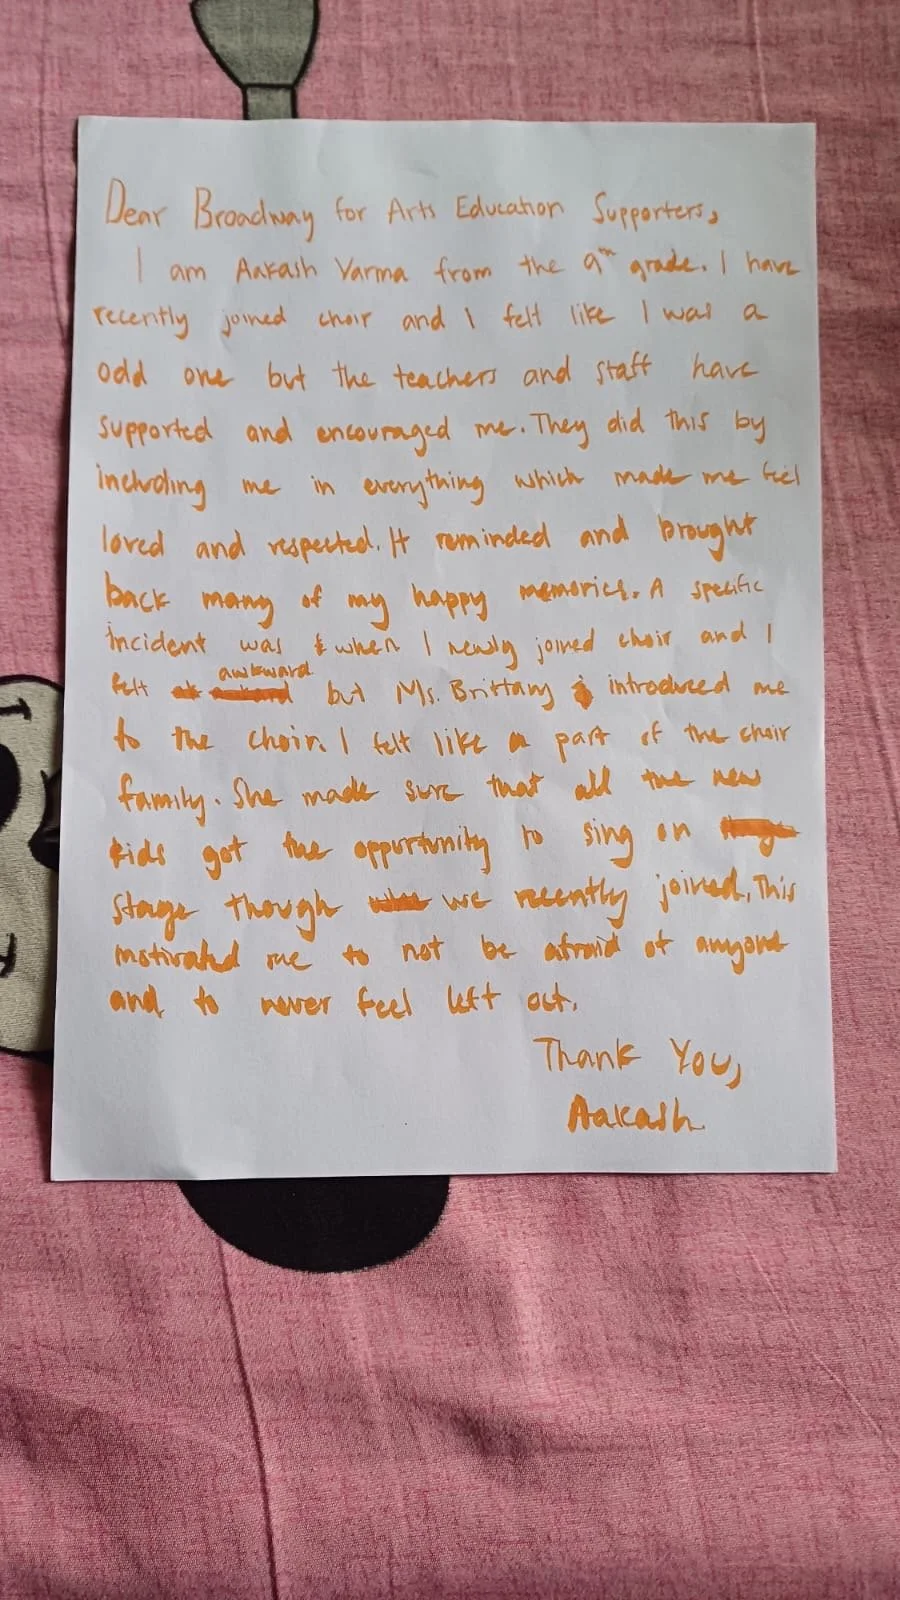 Dear Broadway for Arts Education Supporters,
I am Aakash Varma from the 9th grade. I have
recently joined choir and I felt like I was a
odd one but the teachers and staff have
supported and encouraged me. They did this by
including me in everything which made me feel
loved and respected. It reminded and brought
back many of my happy memories. A specific
incident was when I newly joined choir and I
felt awkward but Ms. Brittany introduced me
to the choir. I felt like a part of the choir
family. She made sure that all the new
kids got the oppurtunity to sing on
stage though we recently joined. This
motivated me to not be afraid of anyone
and to never feel left out.
Thank You,
Aakash